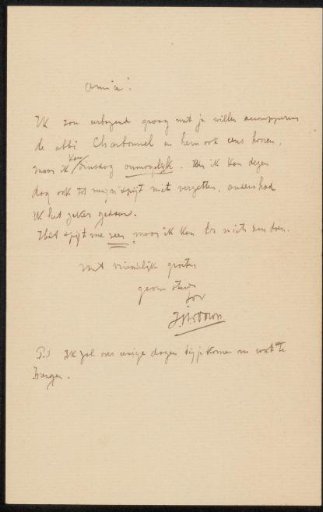 Amice!
Ik zou graag met je willen
de abbé Charbonnel en hem ook eens hooren,
maar ik kan Dinsdag onmogelijk. Ik kan dezen
dag ook tot mijn spijt niet verzetten, anders had
ik het gedaan.
Het spijt me zeer, maar ik kan er niets aan doen.
met vriendelijke groeten
gaarne
P.S. Ik zal over eenige dagen bij je komen om wat te